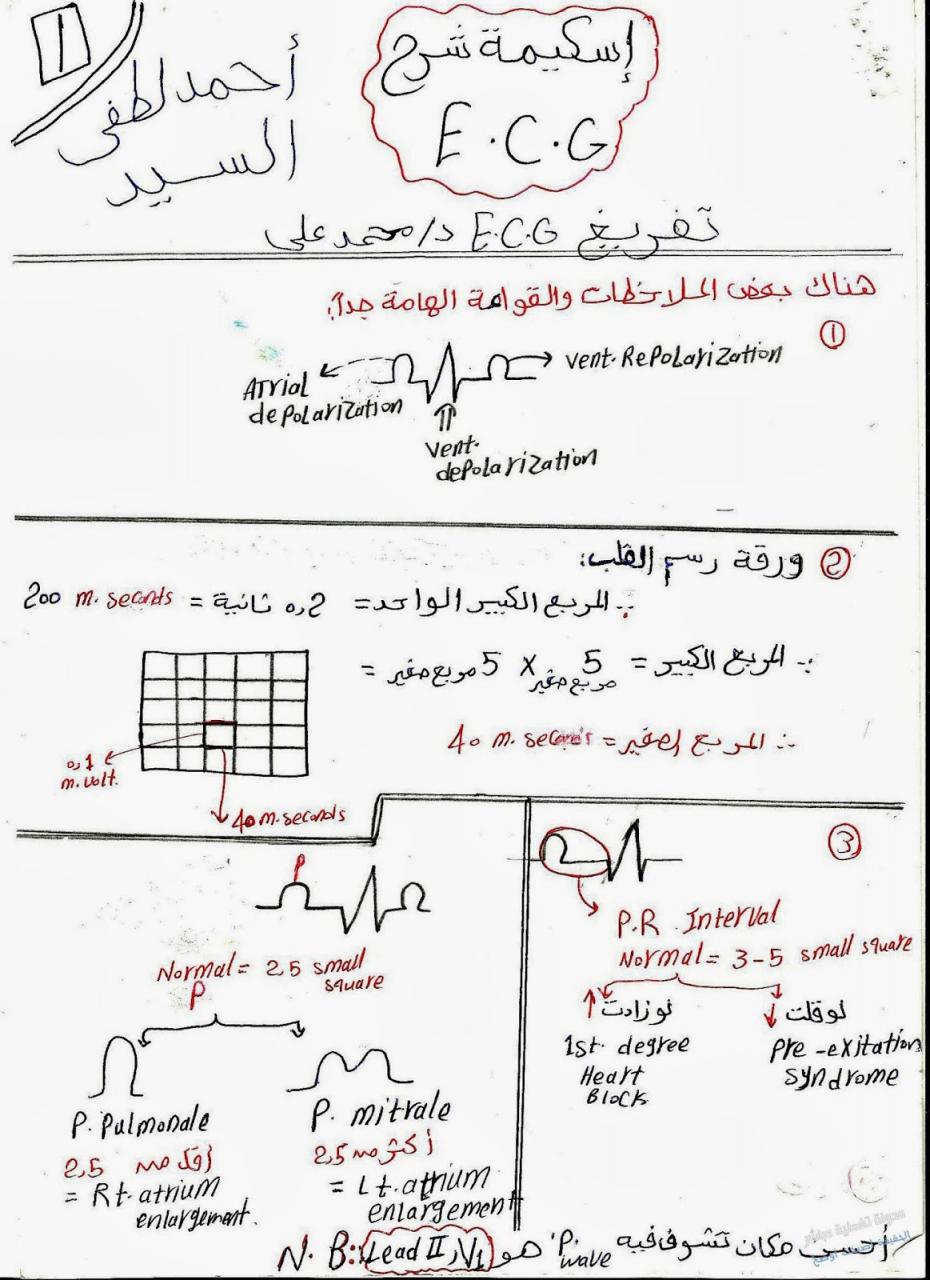 1
إسكيمة شرح
E.C.G
أحمد لطفى
السيد
تفريغ E.C.G د/محمد على
هناك بعض الملاحظات والقواعد الهامة جداً:
①
Atrial
depolarization
vent. Repolarization
Vent.
depolarization
② ورقة رسم القلب:
∴ المربع الكبير الواحد = 0,2 ثانية = 200 m.seconds
∴ المربع الكبير = 5 مربع صغير × 5 مربع صغير =
∴ المربع الصغير = 40 m.seconds
0,1
m.volt.
40 m.seconds
③
P.R Interval
Normal = 3-5 small square
↑ لو زادت
1st. degree
Heart
Block
↓ لو قلت
Pre-exitation
syndrome
P
Normal = 2,5 small
square
P
P. Pulmonale
أقل من 2,5
= Rt. atrium
enlargement.
P. mitrale
أكثر من 2,5
= Lt. atrium
enlargement
N.B:: أحسن مكان تشوف فيه P. wave هو Lead II, V1